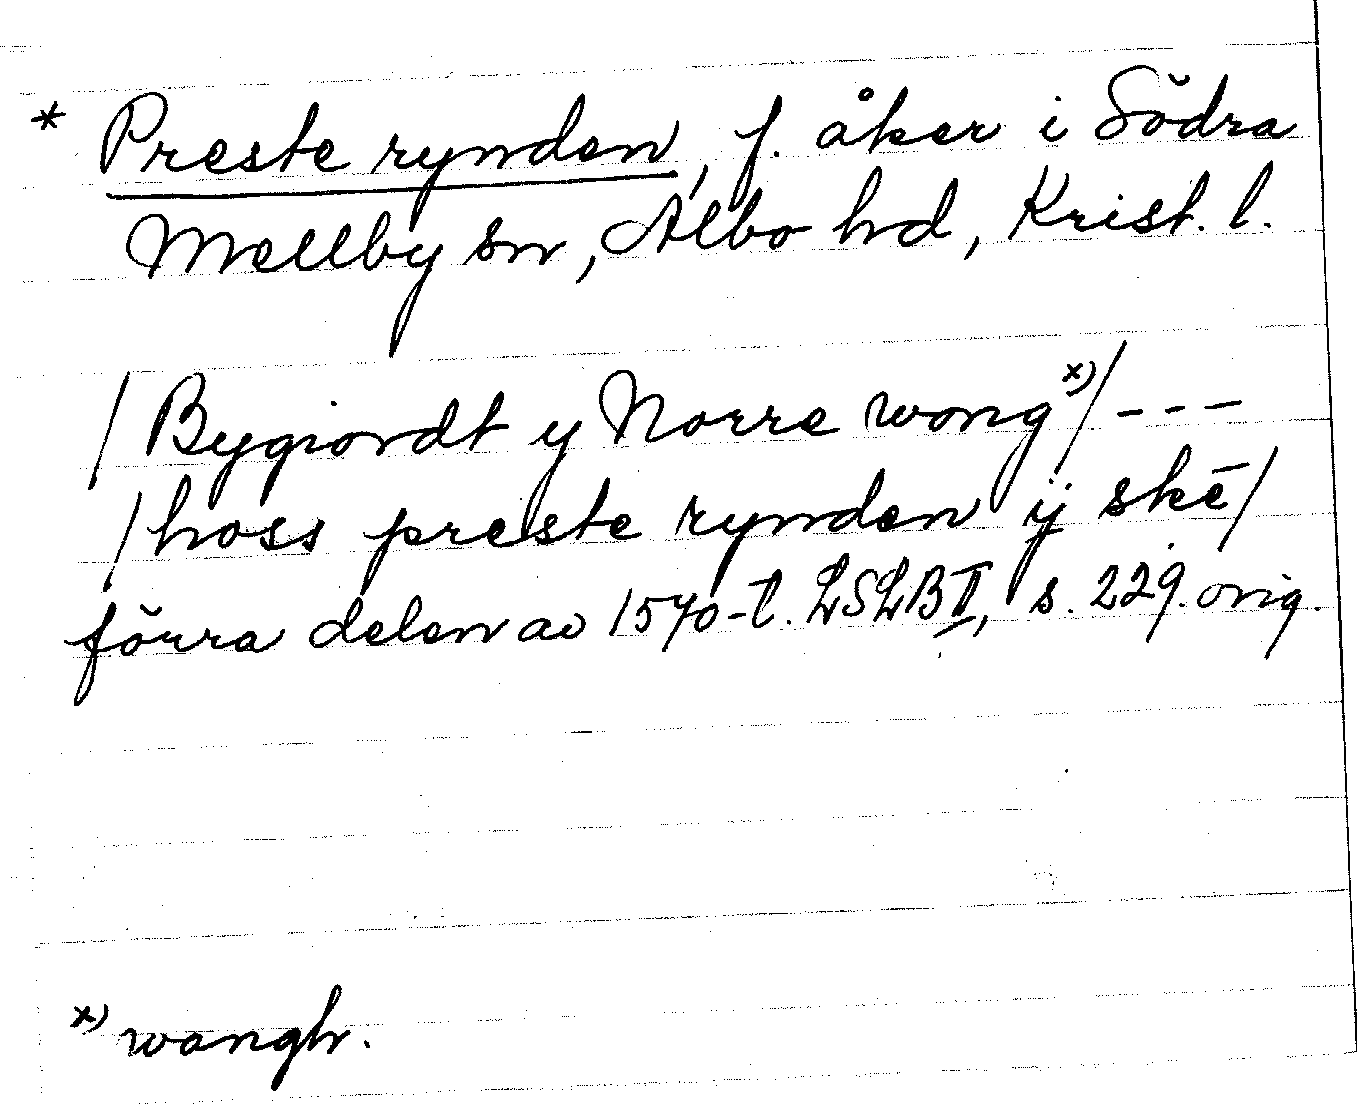 * Preste rynden, f. åker i Södra
Mellby sn, Albo hd, Krist. l.
/Bygiordt y Norre wong x)/---
/hoss preste rynden ÿ skē/
förra delen av 1570-t. LSLB II, s. 229. orig.
x) wangh.